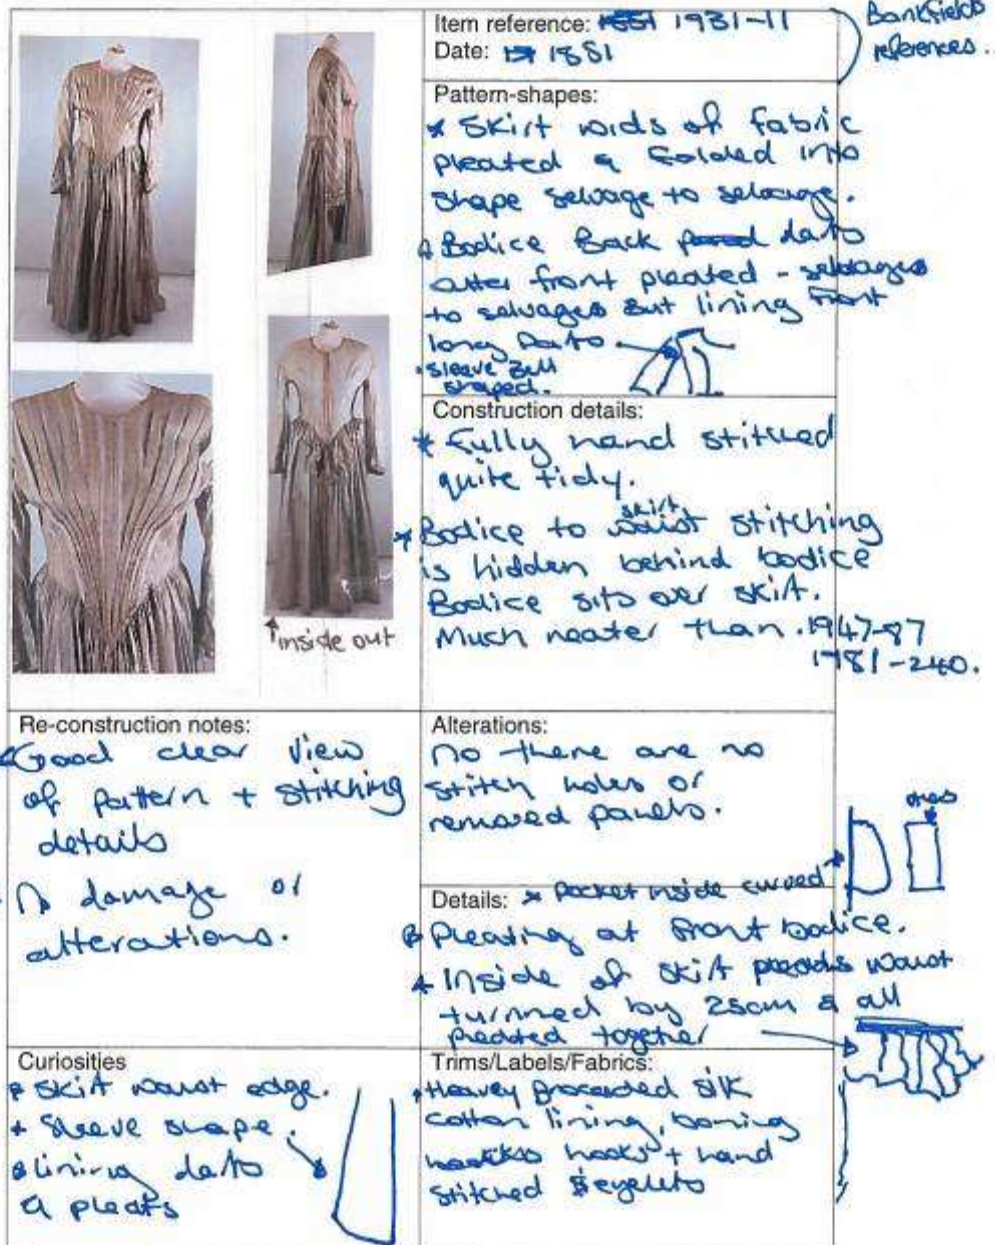 Item reference: 1931-11
Date: 1881
Bankfields
references.
Pattern-shapes:
* Skirt wids of fabric
pleated & folded into
shape selvage to selvage.
* Bodice Back darts
after front pleated - selvages
to selvages But lining front
long Darts
sleeve Bell
shaped.
Construction details:
* Fully hand stitched
quite tidy.
* Bodice to skirt stitching
is hidden behind bodice
Bodice sits over skirt.
Much neater than. 1947-87
1981-240.
inside out
Re-construction notes:
Good clear view
of pattern + stitching
details
damage or
alterations.
Alterations:
No there are no
stitch holes or
removed panels.
Details: * Pocket inside curved
Pleating at front bodice.
* Inside of skirt waist
turnned by 25cm & all
pleated together
Curiosities
* Skirt waist edge.
* Sleeve shape.
* lining darts
& pleats
Trims/Labels/Fabrics:
* Heavey brocaded silk
cotton lining, boning
hooks + hand
stitched eyelets